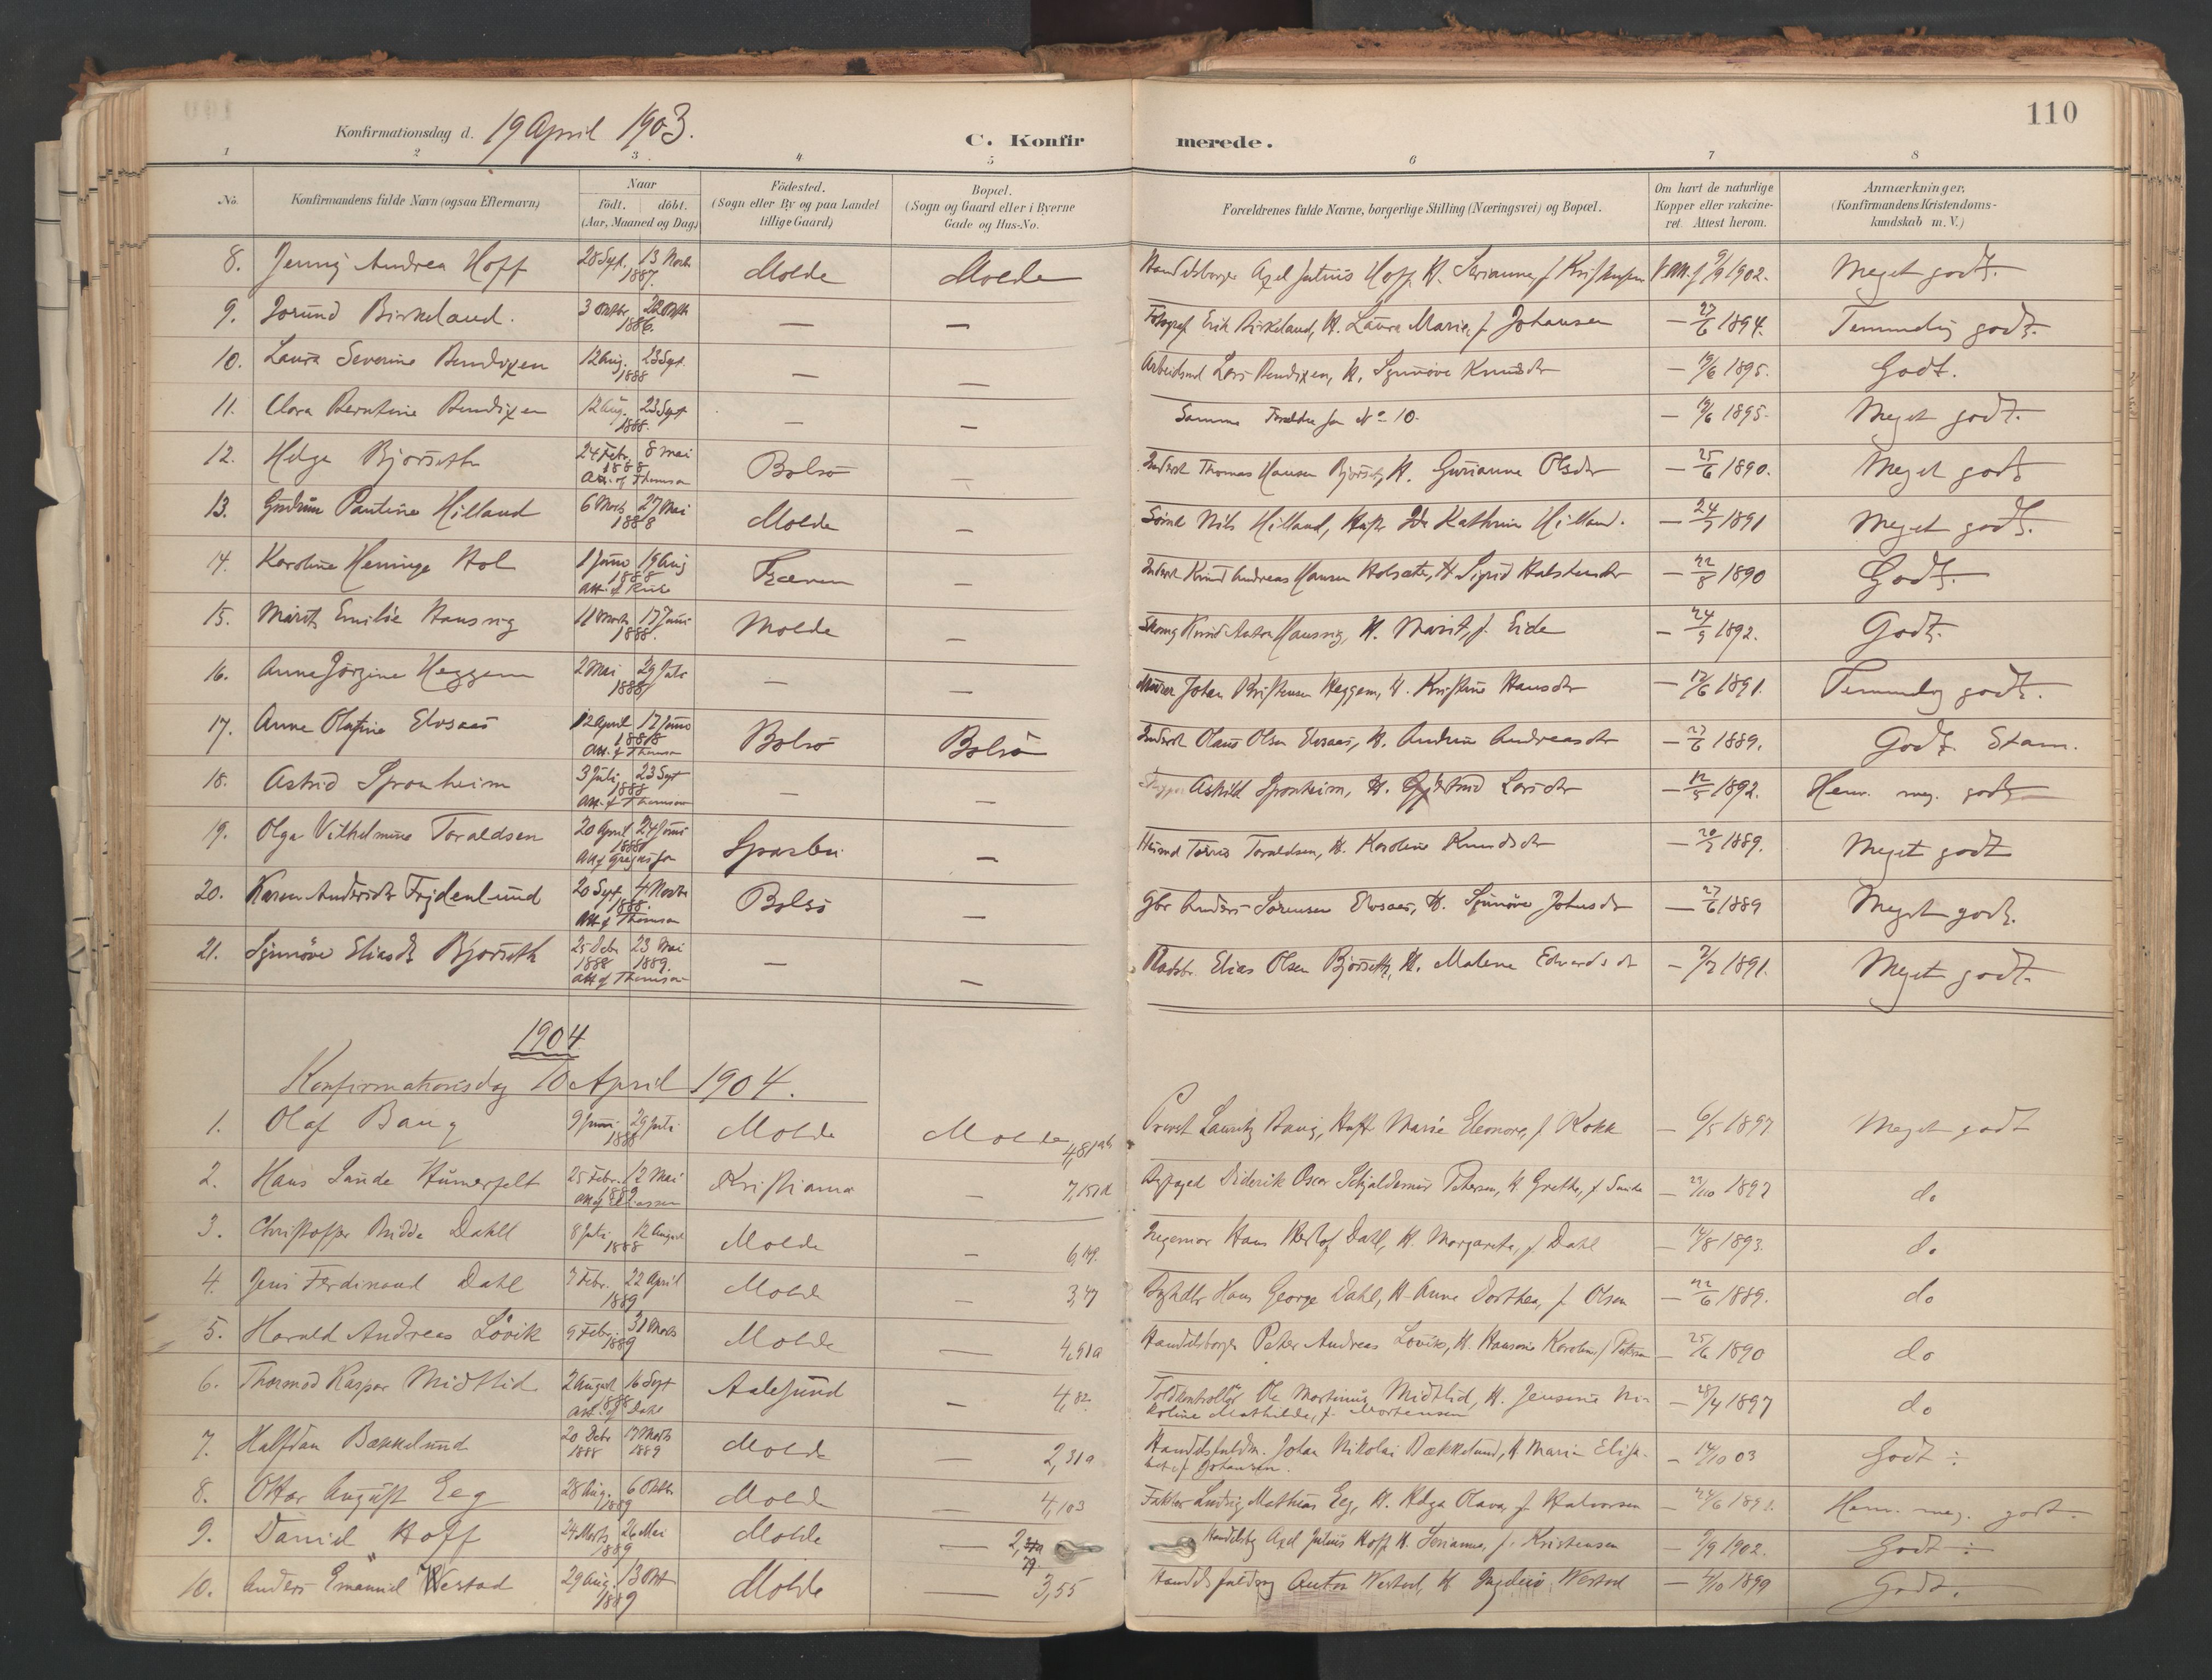 110
Konfirmationsdag d. 19 April 1903.
C. Konfirmerede.
1 2 3 4 5 6 7 8
No.
Konfirmandens fulde Navn (ogsaa Efternavn)
Naar
födt. döbt.
(Aar, Maaned og Dag)
Födested.
(Sogn eller By og paa Landet
tillige Gaard)
Bopæl.
(Sogn og Gaard eller i Byerne
Gade og Hus-No.
Forældrenes fulde Navne, borgerlige Stilling (Næringsvei) og Bopæl.
Om havt de naturlige
Kopper eller vakcine-
ret. Attest herom.
Anmærkninger,
(Konfirmandens Kristendoms-
kundskab m. V.)
8. Jenny Andrea Hoff 28 Sept. 13 Novbr 1887. Molde Molde Handelsborger Axel Julius Hoff, H. Serianna, f. Kristensen 9/9 1902. Meget godt.
9. Jorund Birkeland. 3 Oktbr. 1886. — — Fotograf Erik Birkeland, H. Laura Marie, f. Johansen — 27/6 1894. Temmelig godt.
10. Laura Severine Bendixen 12 Aug. 23 Sept. 1888 — — Arbeidsmd Lars Bendixen, H. Synnøve Knudsdtr — 19/6 1895. Godt.
11. Clara Berntine Bendixen 12 Aug. 23 Sept 1888. — — Samme Forældre som No 10. — 19/6 1895. Meget godt.
12. Helga Bjørseth 24 Febr. 8 Mai 1888 Att. af Thomson Bolsø — Thomas Hansen Bjørseth, H. Gurianna Olsdtr — 25/6 1890. Meget godt
13. Gudrun Pauline Hilland 6 Marts 27 Mai 1888 Molde — Nils Hilland, Kathrine Hilland. — 24/9 1891 Meget godt.
14. Karoline Heninge Hol 1 Juni 19 Aug 1888 Fræna — Knud Andreas Hansen Holsæter, H. Sigrid Halstensdtr — 22/8 1890 Godt.
15. Marit Emilie Hansvig 11 Marts 17 Juni 1888. Molde — Knud Anton Hansvig, H. Marit, f. Eide — 24/9 1892. Godt.
16. Anna Jørgine Heggem 2 Mai 29 Juli 1888 — — Murer Johan Kristensen Heggem, H. Kristine Hansdtr — 12/6 1891. Temmelig godt.
17. Anne Olafine Elvsaas 12 April 17 Juni 1888 Att. af Thomson Bolsø Bolsø Olaus Olsen Elvsaas, H. Andrea Andreasdtr — 27/6 1889. Godt. Stam.
18. Astrid Sponheim 3 Juli 23 Sept 1888 Att. af Thomson — — Askild Sponheim, H. Gjertrud Larsdtr — 12/5 1892. Henv. meg. godt
19. Olga Vilhelmine Toraldsen 20 April 24 Juni 1888 Sparbu — Toraldsen, H. Karoline Knudsdtr — 1889. Meget godt
20. Karen Andersdtr Frydenlund 20 Sept. 4 Novbr 1888. Att. af Thomson Bolsø — Gbr Anders Sørensen Elvsaas, H. Synnøve Johnsdtr — 27/6 1889 Meget godt.
21. Synnøve Eliasdtr Bjørseth 25 Debr 1888 23 Mai 1889. Att af Thomson — — Pladsbr. Elias Olsen Bjørseth, H. Malene Edvardsdtr — 2/7 1891. Meget godt.
1904
Konfirmationsdag 10 April 1904.
1. Olaf Baug 9 Juni 29 Juli 1888 Molde Molde 4,81ab Provst Lauritz Baug, Hustr Marie Eleonore, f. Kokk — 6/5 1897 Meget godt
2. Hans Sunde Humerfelt 25 Febr. 12 Mai 1889 Kristiania — 7,151d Diderik Oscar Schjaldemose Petersen, H. Grethe, f. Sunde — 23/10 1897 do
3. Christoffer Budde Dahl 8 Juli 12 August 1888 Molde — 6,49. Ingeniør Hans Detlof Dahl, H. Margarete, f. Dahl — 14/8 1893. do
4. Jens Ferdinand Dahl 3 Febr. 22 April 1889 Molde — 3,47 Hans George Dahl, H. Anne Dorthea, f. Olsen — 22/6 1889. do
5. Harald Andreas Løvik 9 Febr. 31 Marts 1889 Molde — 4,91a Handelsborger Peter Andreas Løvik, H. Hansine Karoline, f. Petersen — 25/6 1890 do
6. Thormod Kaspar Midtlid 2 August 16 Sept 1888 Att. af Dahl Aalesund — 4,82. Toldkontrollør Ole Martinus Midtlid, H. Jensine Ni-
koline Mathilde, f. Mortensen — 28/4 1897 do
7. Halfdan Bækkelund 20 Debr 1888 17 Marts 1889 Molde — 2,31a Handelsfuldm. Johan Nikolai Bækkelund, H. Maria Elisa-
bet f. Johansen. — 14/10 03 Godt ÷
8. Ottar August Eeg 28 Aug. 6 Oktbr 1889 Molde — 4,103 Faktor Ludvig Mathias Eeg, H. Helga Olava, f. Halvorsen — 24/6 1891. Henv. meg. godt.
9. Daniel Hoff 24 Marts 26 Mai 1889 Molde — 2, 79. Handelsbg Axel Julius Hoff H. Serianna, f. Kristensen — 9/9 1902. Godt ÷
10. Anders Emanuel Westad 29 Aug. 13 Okt 1889 Molde — 3,55 Handelsfuldmg Anton Westad, H. Ingeborg Westad — 4/10 1899 Godt.